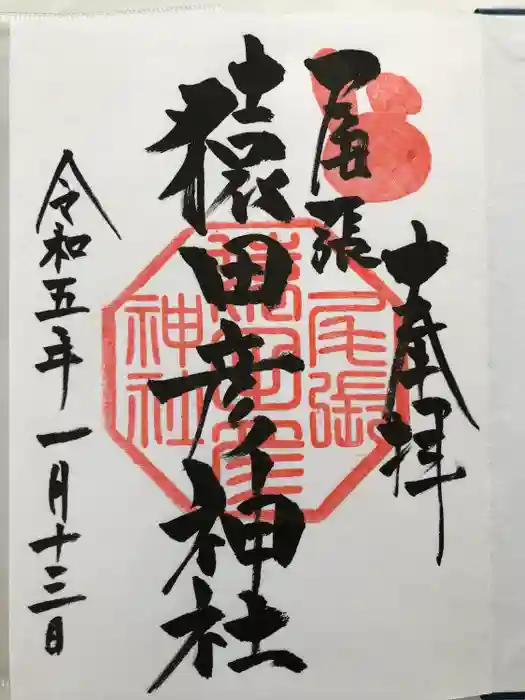 奉拝
尾張
猿田彦神社
尾張
神社
令和五年一月十三日